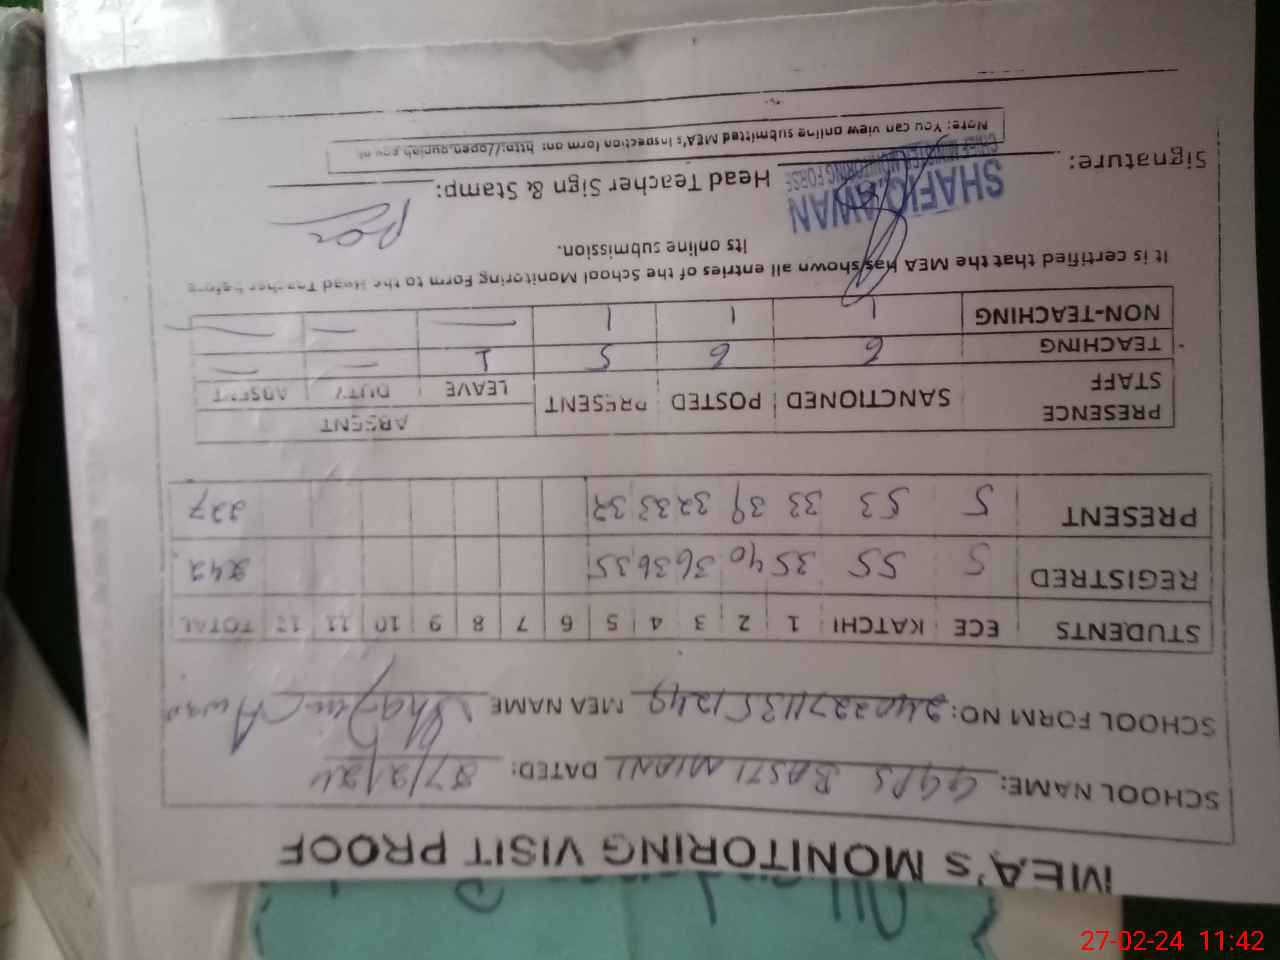 MEA's MONITORING VISIT PROOF
SCHOOL NAME: GGPS BASTI MIANI DATED: 27/2/24
SCHOOL FORM NO: 24022711351249 MEA NAME Shafiq Awan
STUDENTS ECE KATCHI 1 2 3 4 5 6 7 8 9 10 11 12 TOTAL
REGISTRED 5 55 35 40 36 36 35 242
PRESENT 5 53 33 39 32 33 32 227
PRESENCE STAFF SANCTIONED POSTED PRESENT ABSENT
LEAVE DUTY ABSENT
TEACHING 6 6 5 1 — —
NON-TEACHING 1 1 1 — — —
It is certified that the MEA has shown all entries of the School Monitoring Form to the Head Teacher before
its online submission.
SHAFIQ AWAN
CHIEF MINISTER MONITORING FORSE
Signature: Head Teacher Sign & Stamp:
Note: You can view online submitted MEA's inspection form on: http://open.punjab.gov.pk
27-02-24 11:42